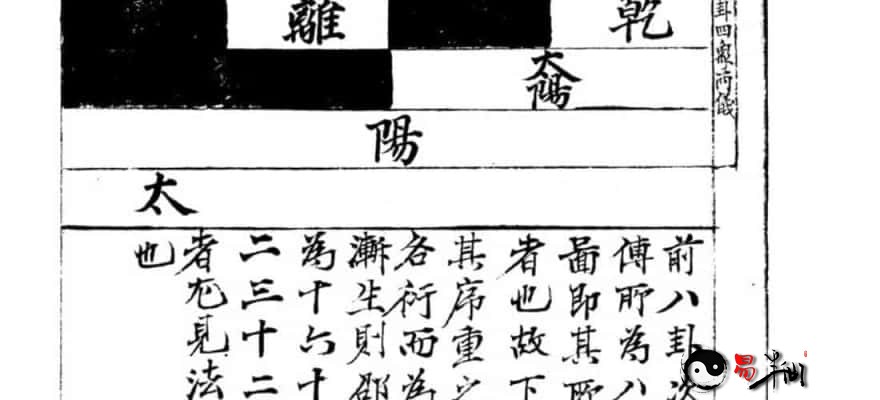 卦四象兩儀
乾
離
太陽
陽
太
前八卦次
傳所為八
圖即其所
者也故下
其序重之
各衍而為
漸生則邵
為十六十
二三十二
者尤見法
也
易半仙